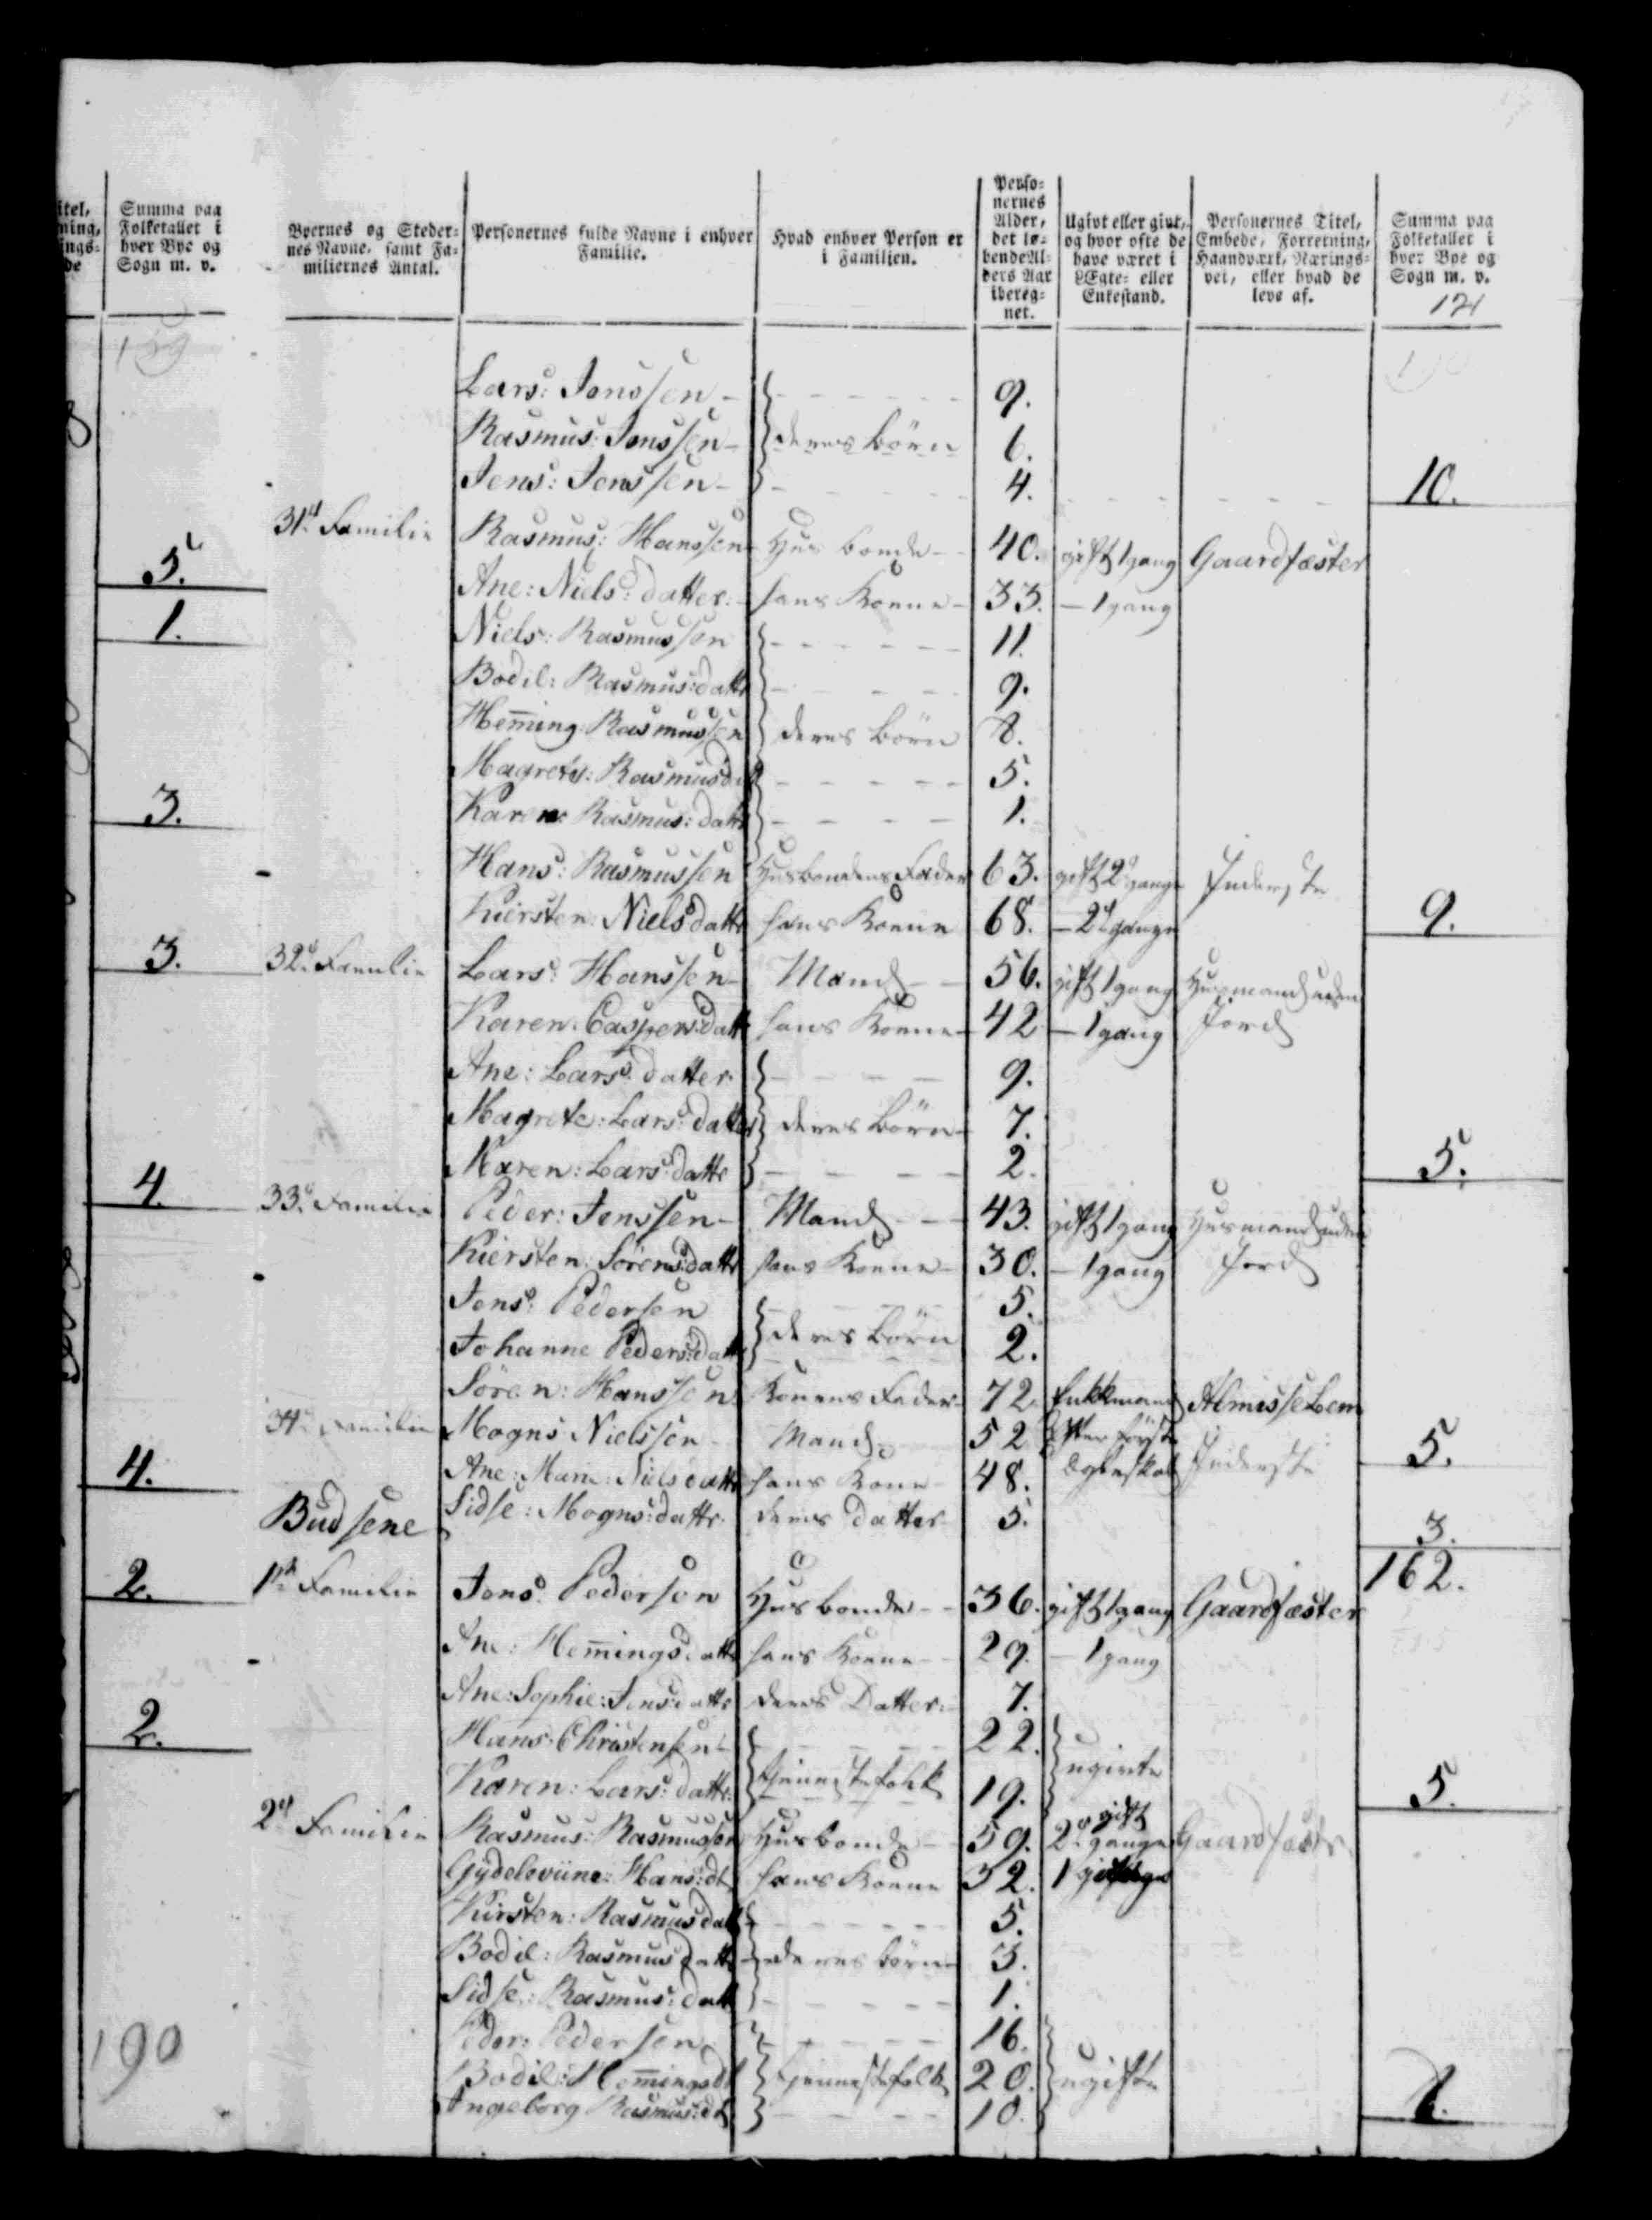 itel,
ning,
ings-
de
Summa paa
Folketallet i
hver Bye og
Sogn m. v.
Byernes og Steder-
nes Navne, samt Fa-
miliernes Antal.
Personernes fulde Navne i enhver
Familie.
Hvad enhver Person er
i Familien.
Perso-
nernes
Alder,
det lø-
bende Al-
ders Aar
ibereg-
net.
Ugivt eller givt,
og hvor ofte de
have været i
Ægte- eller
Enkestand.
Personernes Titel,
Embede, Forretning,
Haandværk, Nærings-
vei, eller hvad de
leve af.
Summa paa
Folketallet i
hver Bye og
Sogn m. v.
121
Lars: Jenssen - 9.
Rasmus: Jenssen - deres börn 6.
Jens: Jenssen - 4. 10.
31d Familie Rasmus: Hanssen Husbonde - 40. gift 1 gang Gaardfæster
5.
Ane: Niels: datter: hans Konne - 33. - 1 gang
1.
Niels: Rasmussen 11.
Bodil: Rasmus: dattr 9.
Hem̄ing Rasmussen deres börn 8.
Magrete: Rasmusd 5.
3.
Karen: Rasmus: dattr 1.
Hans: Rasmussen Husbondens Fader 63. gift 2 gange Inderste
Kiersten: Nielsdattr hans Konne 68. - 2 gange 9.
3.
32d Familie Lars: Hanssen - Mand - 56. gift 1 gang Huusmand uden
Karen: Caspersdatt hans Konne - 42 - 1 gang Jord
Ane: Lars: datter: 9.
Magrete: Lars: datter deres börn - 7.
Maren: Lars: dattr 2. 5.
4.
33d Familie Peder: Jenssen - Mand - 43. gift 1 gang Huusmand uden
Kiersten: Sörens:dattr hans Konne - 30. - 1 gang Jord
Jens: Pedersen 5.
Johanne Peders:datt deres börn 2.
Sören: Hanssen Konens Fader - 72. Enkkemand Almisselem
34d Familie Mogns Nielssen Mand 52 efter förste 5.
4.
Ane: Marie: Nielsdattr hans Kone - 48. Ægteskab Inderste
Budsene
Sidse: Mogns:dattr. deres datter 5. 3.
162.
2.
1d Familie Jens: Pedersen Husbonde - 36. gift 1 gang Gaardfæster
Ane: Hem̄ingsdattr hans Konne - 29. - 1 gang
Ane: Sophie: Jensdattr deres Datter - 7.
2.
Hans: Christensen - 22. ugivte
Karen: Lars: dattr: tjenestefolk 19. 5.
2d Familie Rasmus: Rasmussen Husbonde - 59. gift 2 gange Gaardfæstr
Gydeloviine: Hans:dt hans Konne 32. 1
Kirsten: Rasmusdatt 5.
Bodil: Rasmusdatt deres börn 3.
Sidse: Rasmus: datt 1.
Peder: Pedersen 16.
Bodil: Hem̄ingsdt Tjenestefolk 20. ugifte
Ingeborg Rasmus:dt 10. 8.
190